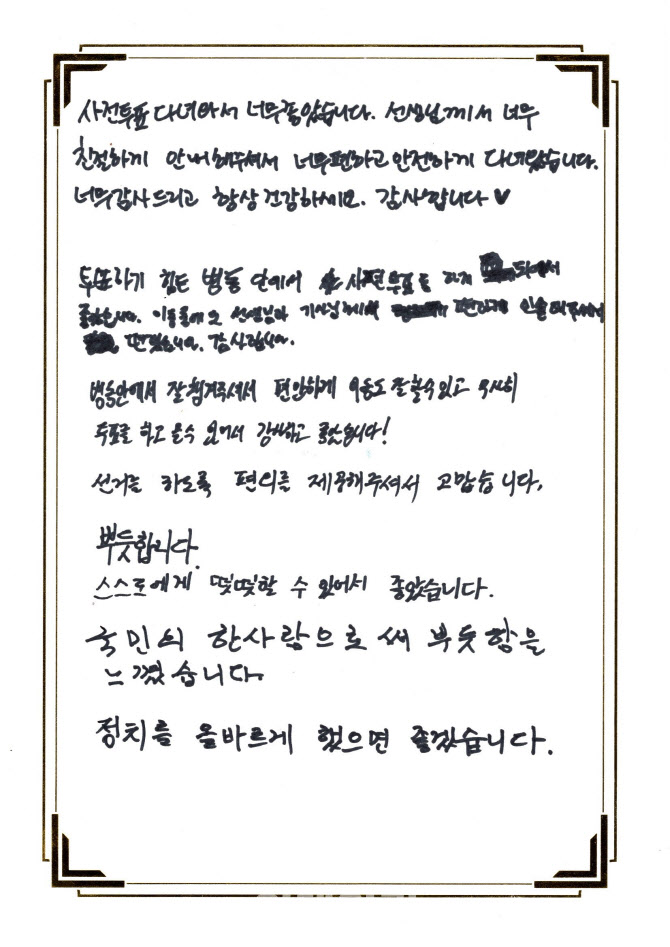 사전투표 다녀와서 너무좋았습니다. 선생님께서 너무
친절하게 안내해주셔서 너무편하고 안전하게 다녀왔습니다.
너무감사드리고 항상 건강하세요. 감사합니다 ♥
투표하기 힘든 병동 안에서 사전투표를 하게 되어서
좋았습니다. 선생님과 기사님께서 편하게 인솔해주셔서
편했습니다. 감사합니다.
병동안에서 잘 챙겨주셔서 편안하게 이동도 잘 할수있고 무사히
투표를 하고 올수 있어서 감사하고 좋았습니다!
선거를 하도록 편의를 제공해주셔서 고맙습니다.
뿌듯합니다.
스스로에게 떳떳할 수 있어서 좋았습니다.
국민의 한사람으로써 뿌듯함을
느꼈습니다.
정치를 올바르게 했으면 좋겠습니다.